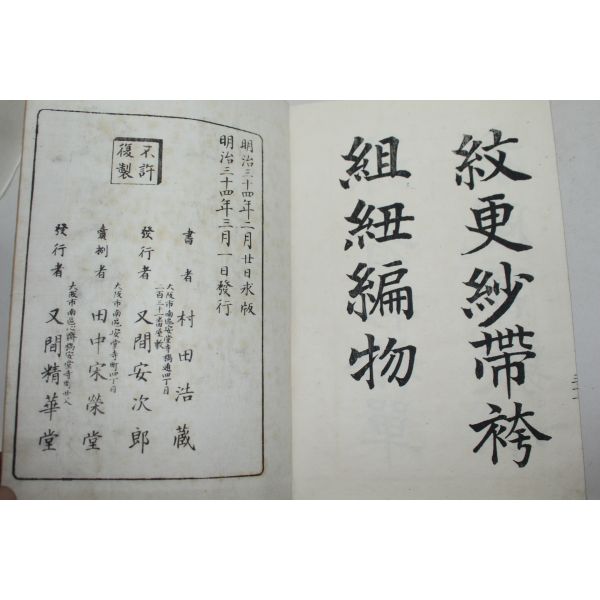 紋更紗帶袴
組紐編物
明治三十四年二月廿日求版
明治三十四年三月一日發行
不許
復製
大阪市南區安堂寺橋通四丁目
二百三十一番屋敷
書者 村田浩藏
發行者 又間安次郎
大阪市南區安堂寺町四丁目
賣捌者 田中宋榮堂
大阪市南區心齋橋安堂寺町廿八
發行者 又間精華堂